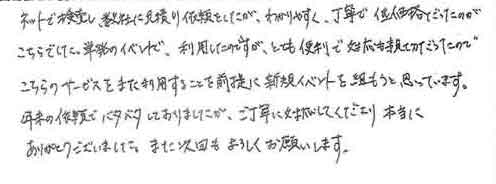 ネットで検索し数社に見積り依頼をしたが、わかりやすく、丁寧で低価格だったのが
こちらでした。単発のイベントで、利用したのですが、とても便利で対応も親切だったので
こちらのサービスをまた利用することを前提に新規イベントを組もうと思っています。
年末の依頼でバタバタしておりましたが、ご丁寧に対応してくださり本当に
ありがとうございました。また次回もよろしくお願いします。